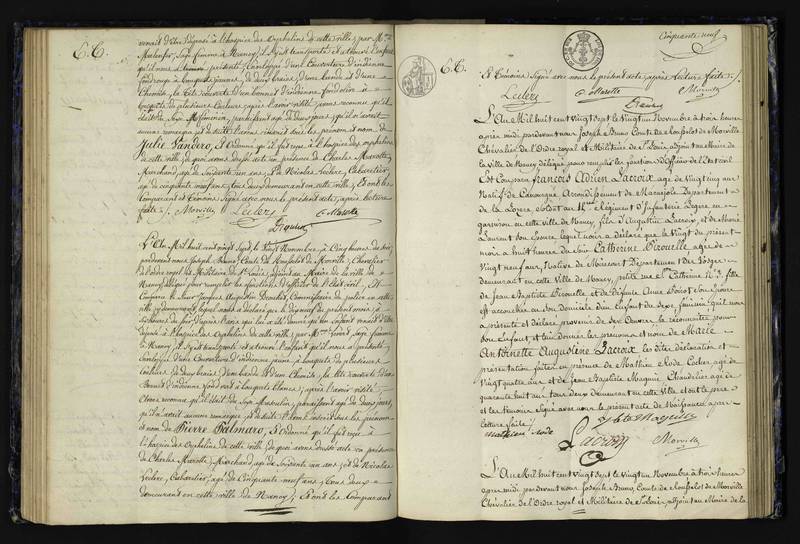 E.E.
venait d'être déposé à l'hospice des Orphelins de cette ville, par M.me
Sage femme à Nancy, il s'y est transporté et a trouvé l'enfant
qu'il nous présente, enveloppé d'une Couverture d'indienne
fond rouge à bouquets jaunes, de deux braies, d'une bande et d'une
Chemise, la tête couverte d'un bonnet d'indienne fond olive à
bouquets de plusieurs Couleurs; après l'avoir visité, nous reconnu qu'il
était du Sexe Féminin, paraissant âgé de deux jours, qu'il n'avait
aucune remarque et de suite l'avons inscrit sous les prénom et nom de
Julie Vandero, et Ordonné qu'il fut reçu à l'hospice des Orphelins
de cette ville, de quoi avons dressé acte en présence de Charles Marotte,
Marchand, âgé de Soixante un ans, et de Nicolas Leclerc, Cabaretier,
âgé de cinquante neuf ans, tous deux demeurant en cette ville, Et ont les
Comparant et Témoins Signé avec nous le présent acte, après lecture
faite. Morville Leclerc C Marotte
L'An Mil huit cent vingt Sept, le Vingt Novembre, à Cinq heures du soir
pardevant nous Joseph, Bruno, Comte de Rousselot de Morville, Chevalier
de l'ordre royal et Militaire de St Louis, adjoint au Maire de la ville de
Nancy, délégué pour remplir les fonctions d'officier de l'Etat civil, Est
Comparu le Sieur Jacques Augustin Drouchet, Commissaire de police en cette
ville y demeurant, lequel nous a déclaré que le dix neuf du présent mois, à
heures du Soir, d'après l'avis qui lui a été donné qu'un Enfant venait d'être
déposé à l'hospice des Orphelins de cette ville, par M.me Sage femme
à Nancy, il s'y est transporté et a trouvé l'enfant qu'il nous a présenté,
Enveloppé d'une Couverture d'indienne jaune à bouquets de plusieurs
Couleurs, de deux braies, d'une bande et d'une Chemise, la tête couverte d'un
Bonnet d'indienne fond noir à bouquets blancs; après l'avoir visité,
avons reconnu qu'il était du Sexe Masculin, paraissant âgé de deux jours,
qu'il n'avait aucune remarque et de suite l'avons inscrit sous les prénom
et nom de Pierre Balmaro, Et Ordonné qu'il fut reçu à
l'hospice des Orphelins de cette ville, de quoi avons dressé acte en présence
de Charles Marotte, Marchand, âgé de Soixante un ans, et de Nicolas
Leclerc, Cabaretier, âgé de Cinquante neuf ans, tous deux
demeurant en cette ville de Nancy, Et ont les Comparant
Cinquante neuf
E.E.
Et Témoins Signé avec nous le présent acte, après lecture faite.
Leclerc C Marotte Morville
L'An Mil huit cent vingt Sept le Vingt un Novembre à trois heures
après midi pardevant nous Joseph Bruno Comte de Rousselot de Morville
Chevalier de l'Ordre royal et Militaire de St Louis, adjoint au Maire de
la Ville de Nancy délégué pour remplir les fonctions d'Officier de l'Etat civil
Est Comparu François Adrien Lacroix âgé de Vingt cinq ans
Natif de Canourgue Arrondissement de Marvejols Département
de la Lozère, Soldat au 14me Régiment d'Infanterie Légère en
garnison en cette ville de Nancy, fils d'Augustin Lacroix, et de Marie
Laurent son épouse, lequel nous a déclaré que le Vingt du présent
mois à huit heures du Soir Catherine Pirouelle âgée de
Vingt neuf ans, Native de Mirecourt Département des Vosges
demeurant en cette Ville de Nancy, petite rue Ste Catherine N.° 3, fille
de Jean Baptiste Pirouelle et de Défunte Anne Poirot Son Epouse
est accouchée en Son domicile d'un Enfant du Sexe, féminin, qu'il nous
a présenté et déclaré provenir de Ses Oeuvres, le reconnaître pour
Son Enfant, et lui donner les prénoms et nom de Marie
Antoinette Augustine Lacroix, les dites déclaration et
présentation faites en présence de Mathieu Rode Cocher âgé de
Vingt quatre ans et de Jean Baptiste Magnin Chandelier âgé de
quarante huit ans tous deux demeurant en cette Ville et ont le père
et les témoins Signé avec nous le présent acte de Naissance, après
lecture faite. Jbte Magnin
Mathieu Rode
Lacroix Morville
L'An Mil huit cent vingt Sept le Vingt un Novembre à trois heures
après midi pardevant nous Joseph Bruno, Comte de Rousselot de Morville
Chevalier de l'Ordre royal et Militaire de St Louis, adjoint au Maire de la